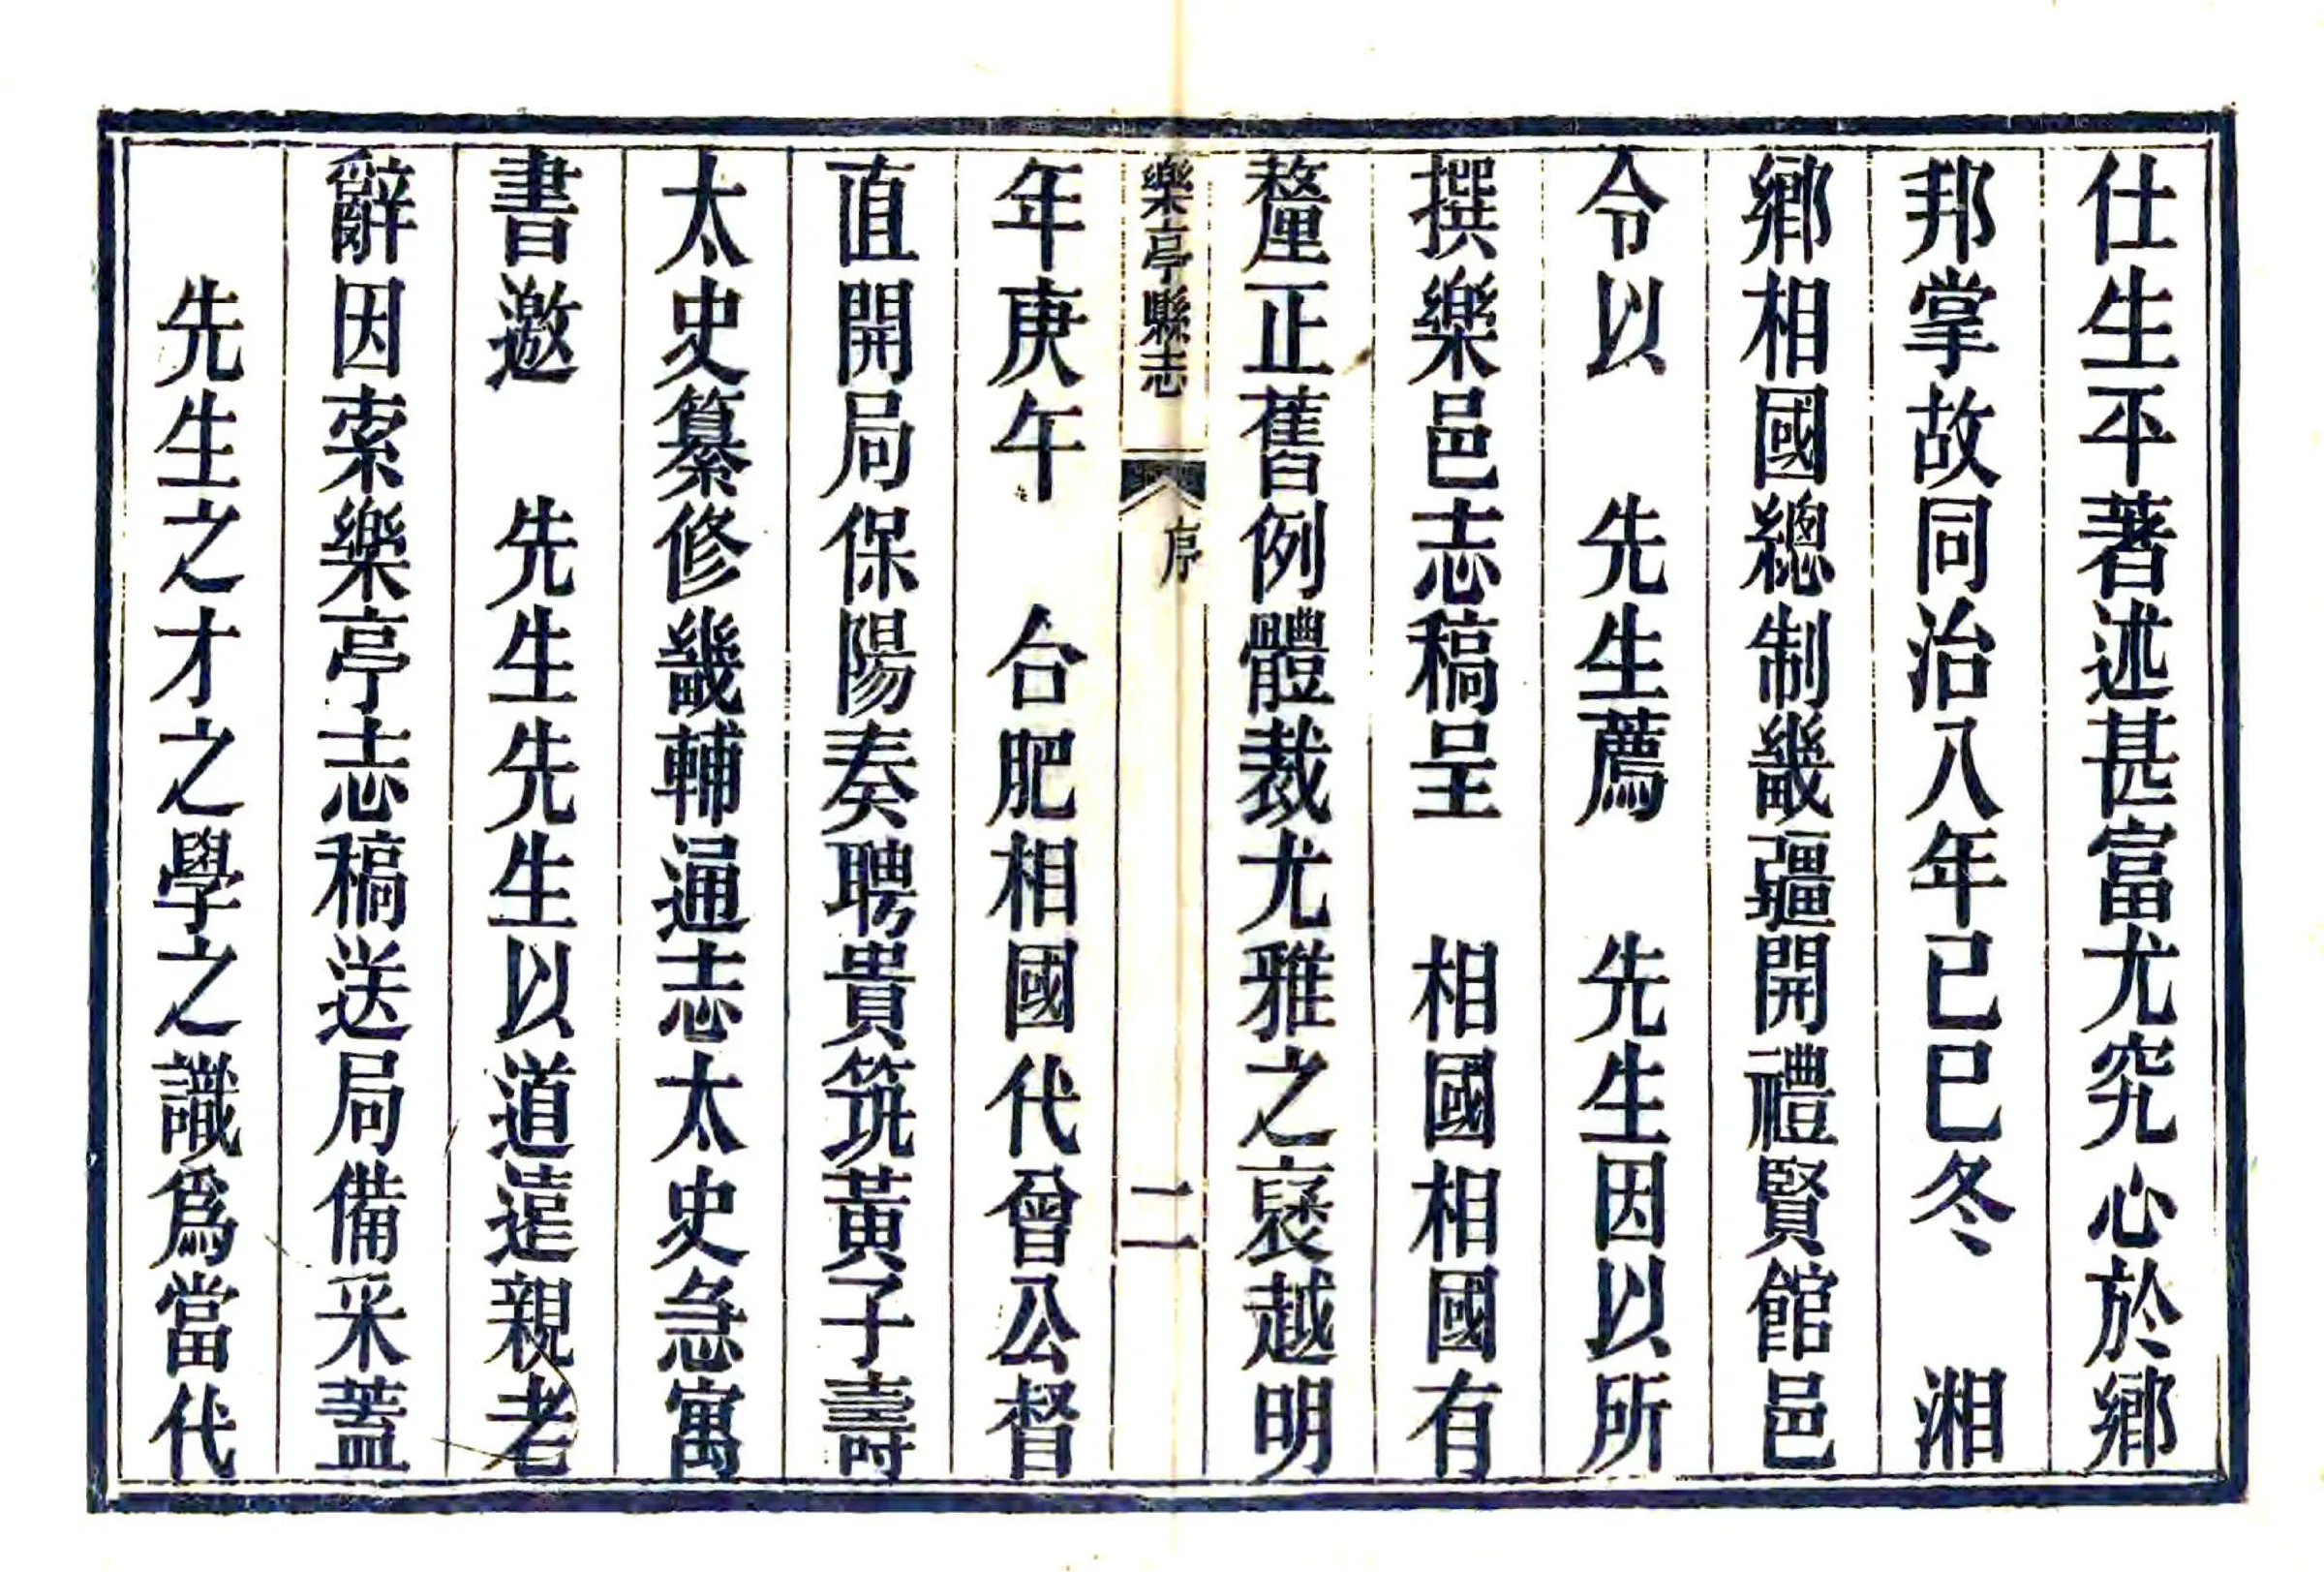 仕生平著述甚富尤究心於鄉
邦掌故同治八年己巳冬　湘
鄉相國總制畿疆開禮賢館邑
令以　先生薦　先生因以所
撰樂邑志稿呈　相國相國有
釐正舊例體裁尤雅之褒越明
樂亭縣志　序　二
年庚午　合肥相國代曾公督
直開局保陽奏聘貴筑黃子壽
太史纂修畿輔通志太史急寓
書邀　先生先生以道遠親老
辭因索樂亭志稿送局備采蓋
先生之才之學之識爲當代